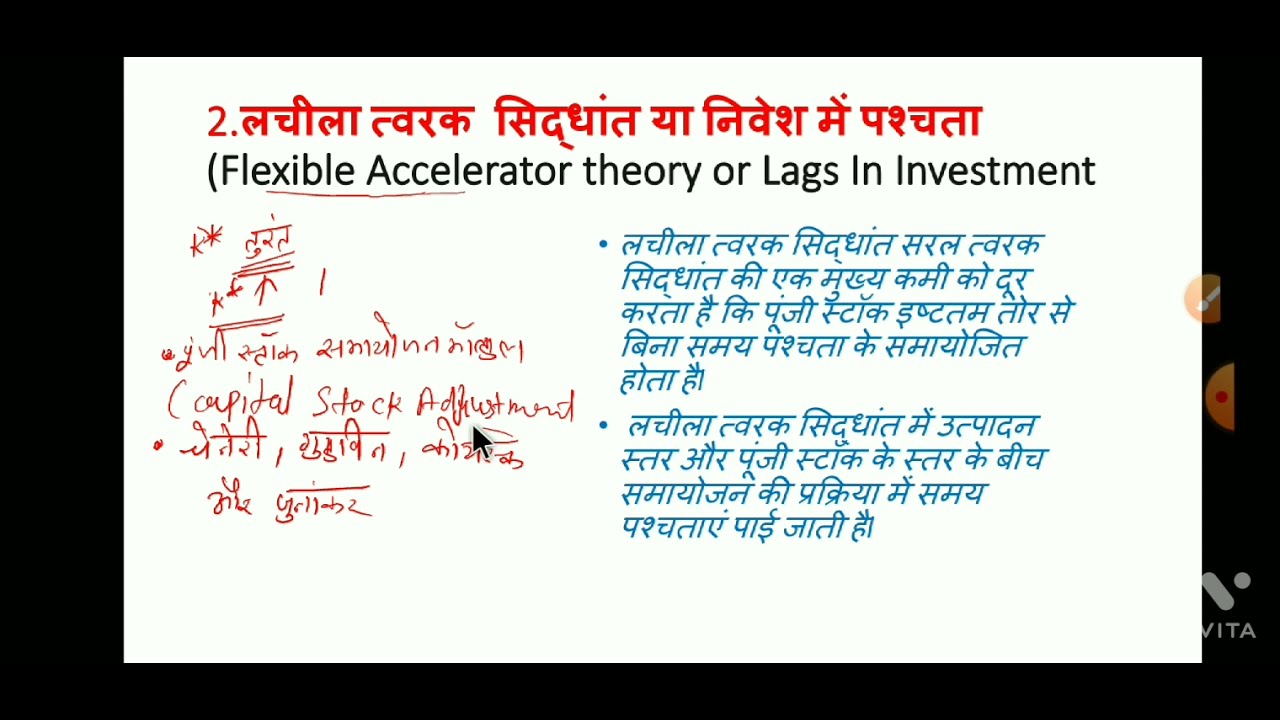 2.लचीला त्वरक सिद्धांत या निवेश में पश्चता
(Flexible Accelerator theory or Lags In Investment
K* तुरंत
K* ↑
• पूंजी स्टॉक समायोजन मॉडल
(Capital Stock Adjustment
• चेनेरी, गुडविन, कोयक
और जुनांकर
• लचीला त्वरक सिद्धांत सरल त्वरक
सिद्धांत की एक मुख्य कमी को दूर
करता है कि पूंजी स्टॉक इष्टतम तोर से
बिना समय पश्चता के समायोजित
होता है।
• लचीला त्वरक सिद्धांत में उत्पादन
स्तर और पूंजी स्टॉक के स्तर के बीच
समायोजन की प्रक्रिया में समय
पश्चताएं पाई जाती है।
VITA